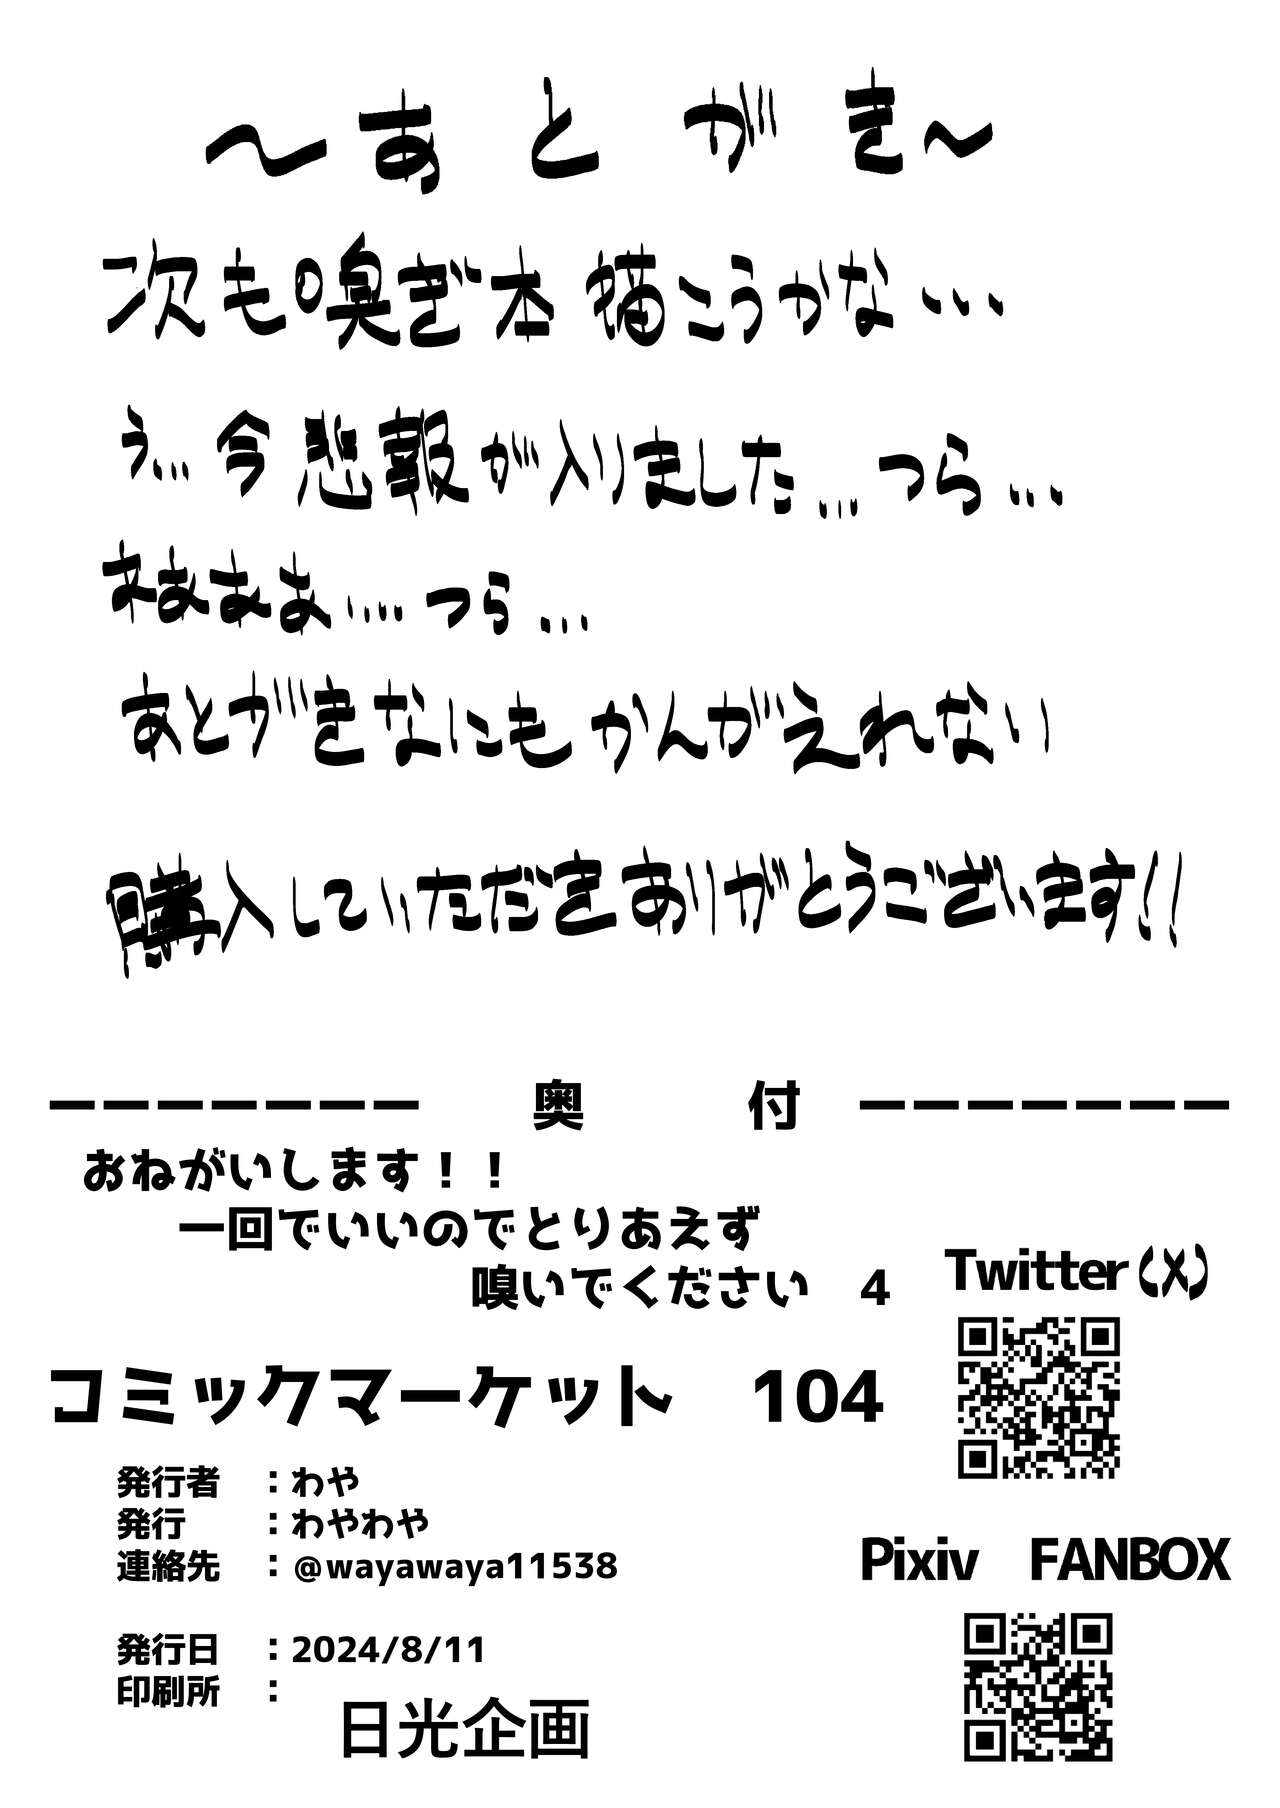 ～あとがき～
次も嗅ぎ本描こうかな…
う…今悲報が入りました…つら…
まああ…つら…
あとがきなにもかんがえれない
購入していただきありがとうございます!!
ーーーーーーー 奥 付 ーーーーーーー
おねがいします！！
一回でいいのでとりあえず
嗅いでください 4
Twitter(X)
コミックマーケット 104
発行者 ：わや
発行 ：わやわや
連絡先 ：@wayawaya11538
Pixiv FANBOX
発行日 ：2024/8/11
印刷所 ：
日光企画